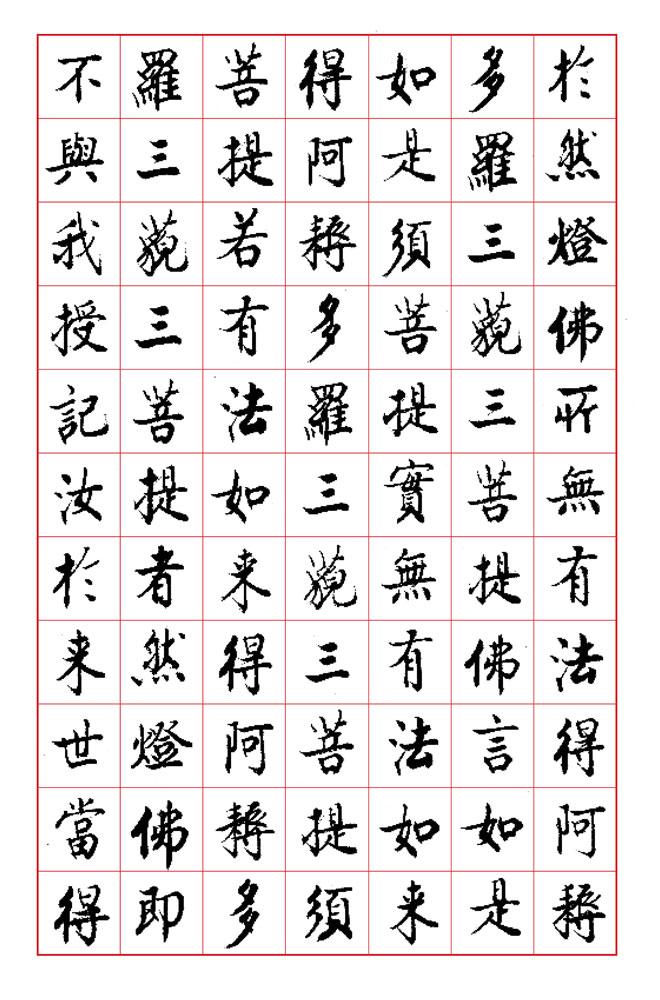 於然燈佛所無有法得阿耨
多羅三藐三菩提佛言如是
如是須菩提實無有法如来
得阿耨多羅三藐三菩提須
菩提若有法如来得阿耨多
羅三藐三菩提者然燈佛即
不與我授記汝於来世當得